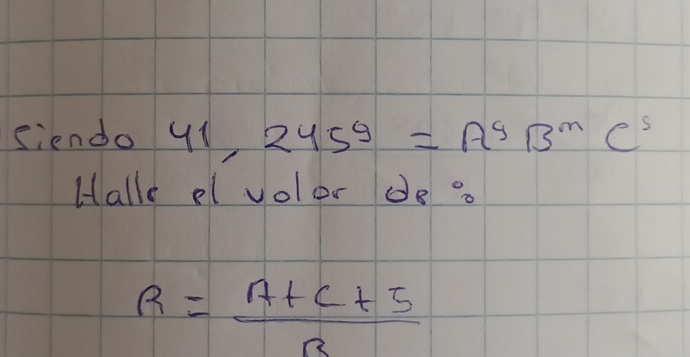 Siendo 41,245ᵍ = Aᵍ Bᵐ Cˢ
Halle el valor de:
R = A+C+5
B